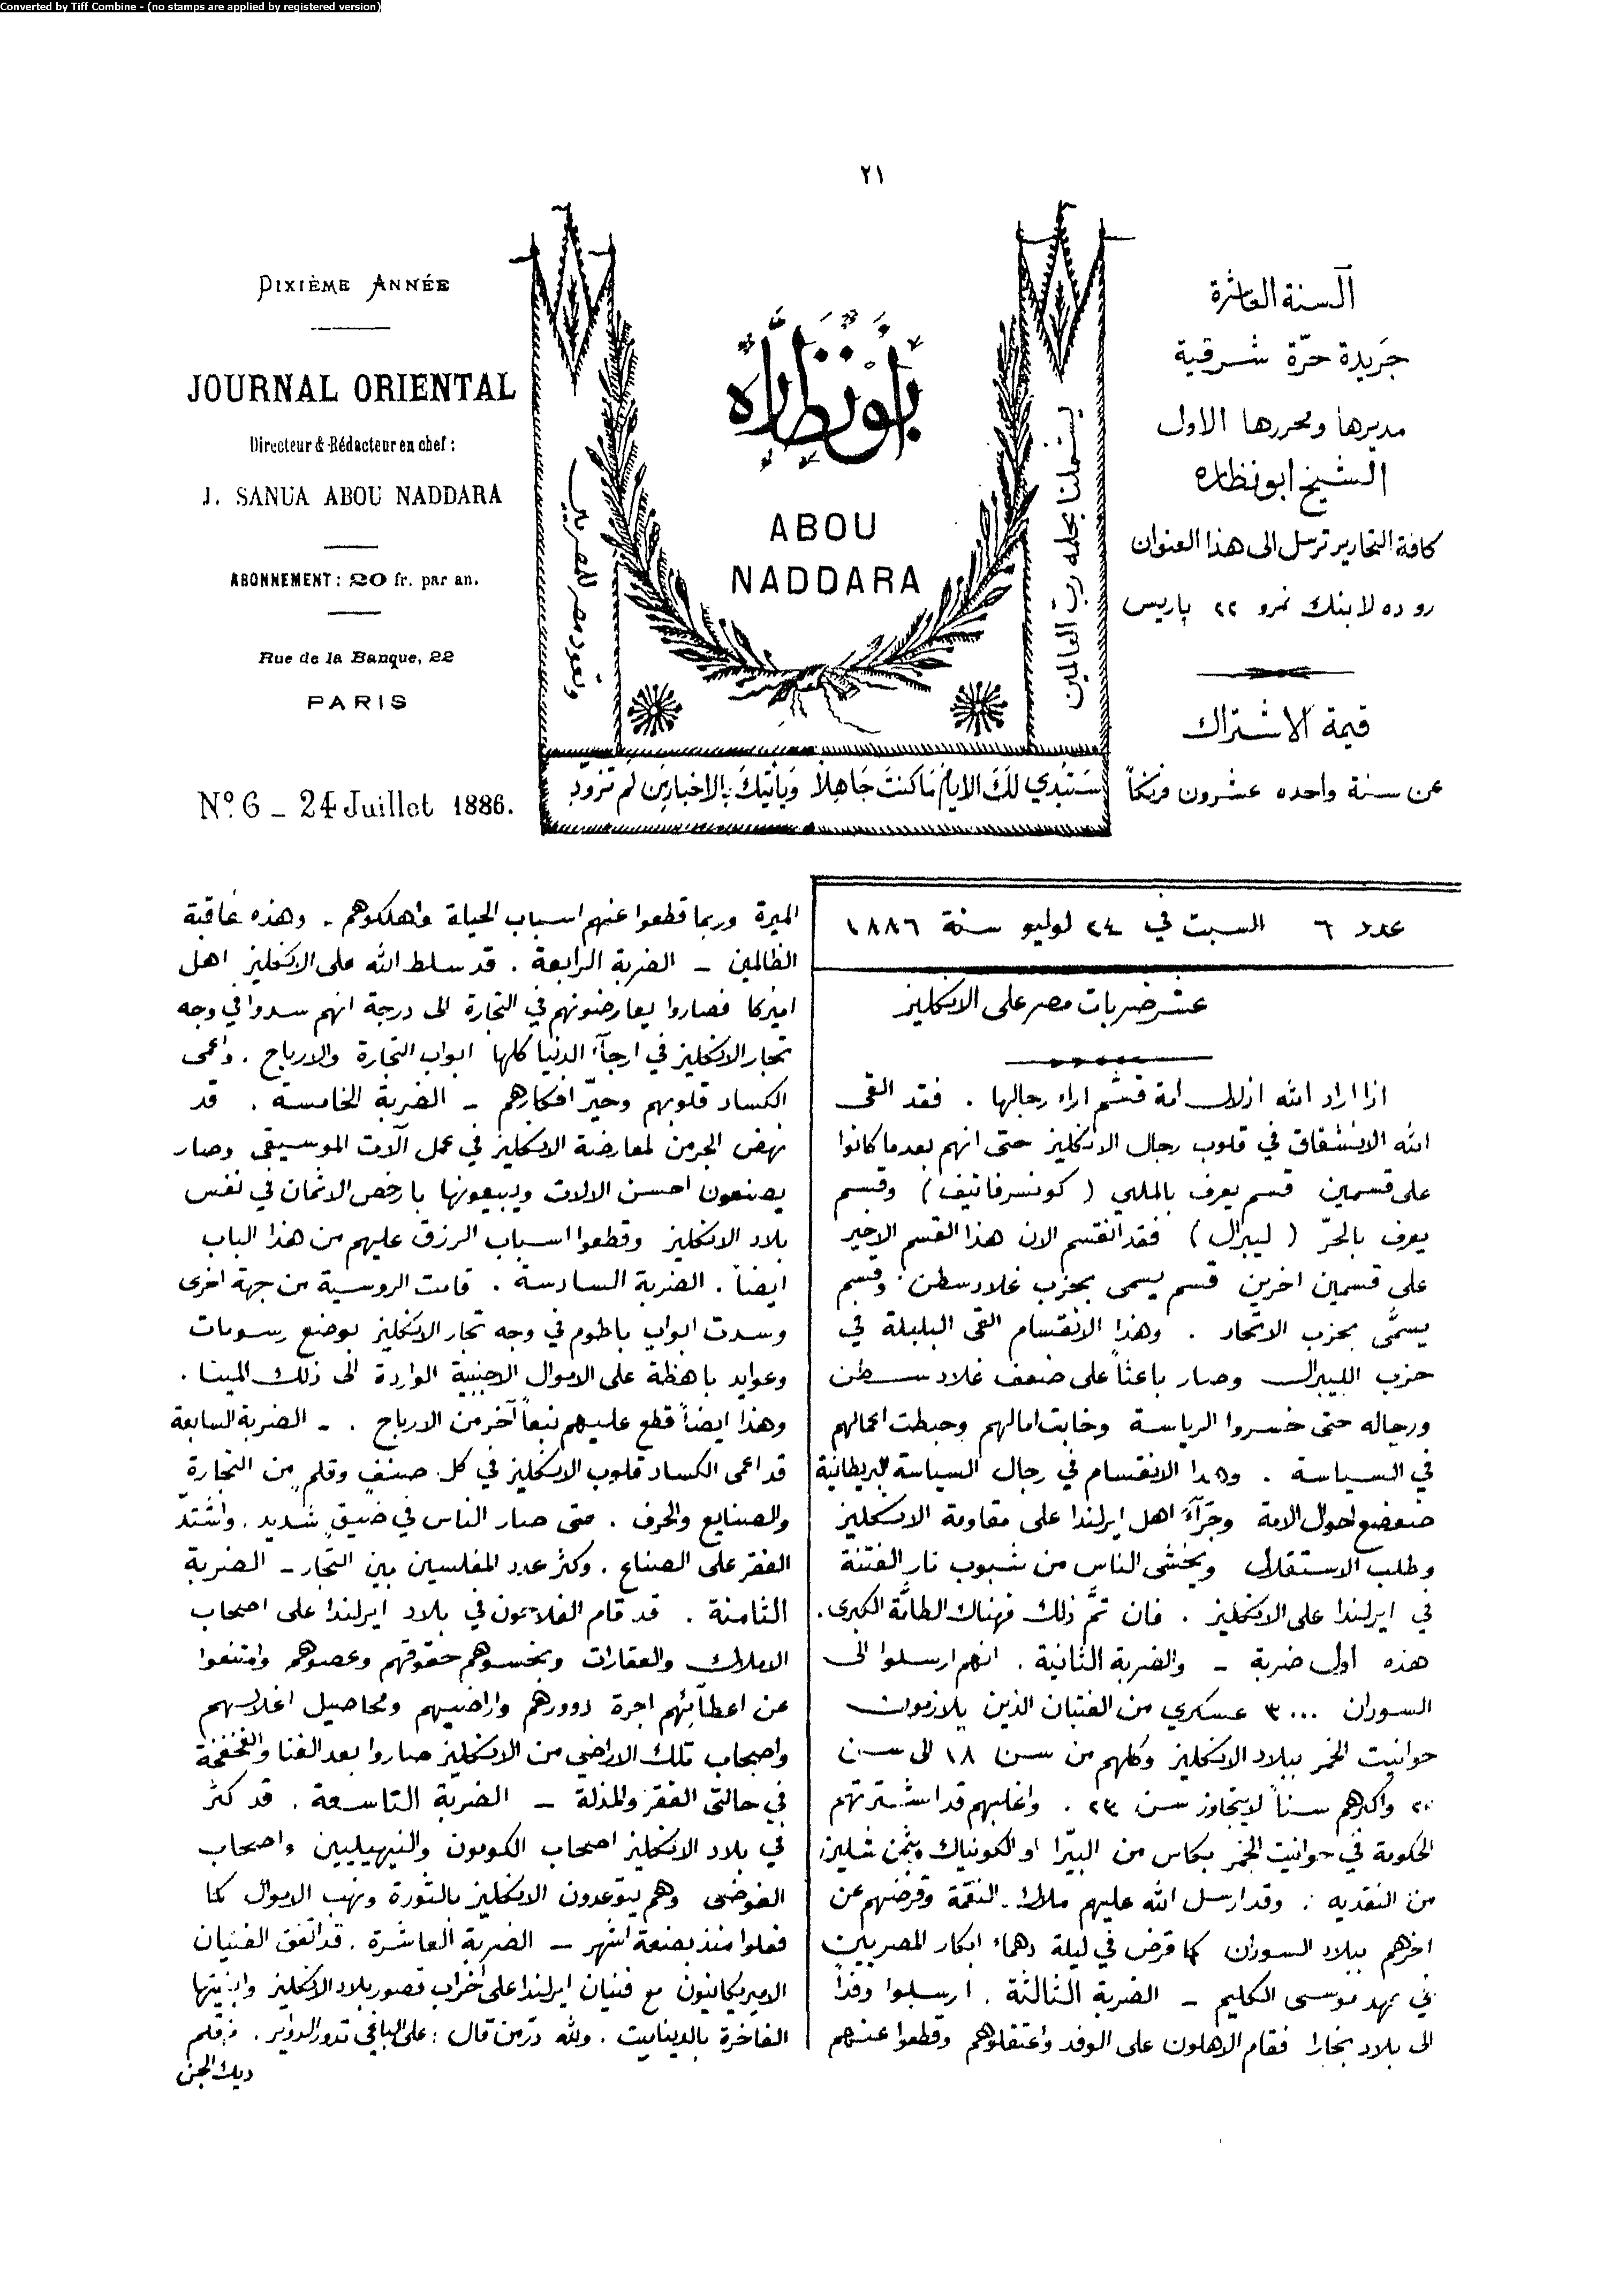 Converted by Tiff Combine - (no stamps are applied by registered version)
٢١
DIXIÈME ANNÉE
JOURNAL ORIENTAL
Directeur & Rédacteur en chef :
J. SANUA ABOU NADDARA
ABONNEMENT : 20 fr. par an.
Rue de la Banque, 22
PARIS
Nº. 6 _ 24 Juillet 1886.
أبو نظاره
ABOU
NADDARA
يشملنا بحلمه رب العالمين
وتعود مصر للمصريين
سَتُبدي لكَ الايامُ مَا كنتَ جَاهِلاً وَيأتيكَ بالاخبارِ مَن لم تزوّدِ
السنة العاشرة
جَريدة حرّة شرقية
مديرها ومحررها الاول
الشيخ ابو نظاره
كافة التحارير ترسل الى هذا العنوان
رو ده لا بنك نمرو ٢٢ پاريس
قيمة الاشتراك
عن سنة واحده عشرون فرنكاً
عدد ٦ السبت في ٢٤ لوليو سنة ١٨٨٦
عشر ضربات مصر على الانكليز
اذا اراد الله اذلال امة قسّم اراء رجالها . فقد القى
الله الانشقاق في قلوب رجال الانكليز حتى انهم بعد ما كانوا
على قسمين قسم يعرف بالملي ( كونسرفاتيف ) وقسم
يعرف بالحرّ ( ليبرال ) فقد انقسم الان هذا القسم الاخير
على قسمين اخرين قسم يسمى بحزب غلادسطن . وقسم
يسمَّى بحزب الاتحاد . وهذا الانقسام القى البلبلة في
حزب الليبرال وصار باعثاً على ضعف غلادسطن
ورجاله حتى خسروا الرياسة وخابت امالهم وحبطت اعمالهم
في السياسة . وهذا الانقسام في رجال السياسة البريطانية
ضعضع احوال الامة وجرّآء اهل ايرلندا على مقاومة الانكليز
وطلب الاستقلال ويخشى الناس من شبوب نار الفتنة
في ايرلندا على الانكليز . فان تمَّ ذلك فهناك الطامَّة الكبرى .
هذه اول ضربة - والضربة الثانية . انهم ارسلوا الى
السودان ٣٠٠٠ عسكري من الفتيان الذين يلازمون
حوانيت الخمر ببلاد الانكليز وكلهم من سن ١٨ الى سن
٢٠ واكبرهم سناً لا يتجاوز سن ٢٣ . واغلبهم قد اشترتهم
الحكومة في حوانيت الخمر بكاس من البيّرا او الكونياك وبثمن شلين
من النقديه . وقد ارسل الله عليهم ملاك النقمة وقرضهم عن
اخرهم ببلاد السودان كما قرض في ليلة دهماء ابكار المصريين
في عهد موسى الكليم - الضربة الثالثة . ارسلوا وفداً
الى بلاد بخارا فقام الاهلون على الوفد واعتقلوهم وقطعوا عنهم
الميرة وربما قطعوا عنهم اسباب الحياة واهلكوهم . وهذه عاقبة
الظالمين - الضربة الرابعة . قد سلط الله على الانكليز اهل
اميركا فصاروا يعارضونهم في التجارة الى درجة انهم سدوا في وجه
تجار الانكليز في ارجآء الدنيا كلها ابواب التجارة والارباح . واعمى
الكساد قلوبهم وحيّر افكارهم - الضربة الخامسة . قد
نهض الجرمن لمعارضة الانكليز في عمل آلات الموسيقى وصار
يصنعون احسن الالات ويبيعونها بارخص الاثمان في نفس
بلاد الانكليز وقطعوا اسباب الرزق عليهم من هذا الباب
ايضاً . الضربة السادسة . قامت الروسية من جهة اخرى
وسدت ابواب باطوم في وجه تجار الانكليز بوضع رسومات
وعوايد باهظة على الاموال الاجنبية الواردة الى ذلك المينا .
وهذا ايضاً قطع عليهم نبعاً آخر من الارباح . - الضربة السابعة
قد اعمى الكساد قلوب الانكليز في كل صنفٍ وقلمٍ من التجارة
والصنايع والحرف . حتى صار الناس في ضيق شديد . واشتدّ
الفقر على الصناع . وكثر عدد المفلسين بين التجار - الضربة
الثامنة . قد قام الفلاحون في بلاد ايرلندا على اصحاب
الاملاك والعقارات وبخسوهم حقوقهم وعصوهم وامتنعوا
عن اعطآئهم اجرة دوورهم واراضيهم ومحاصيل اغلالهم
واصحاب تلك الاراضي من الانكليز صاروا بعد الغنا والفخفخة
في حالتي الفقر والمذلة - الضربة التاسعة . قد كثر
في بلاد الانكليز اصحاب الكومون والنيهيليين واصحاب
الفوضى وهم يتوعدون الانكليز بالثورة ونهب الاموال كما
فعلوا منذ بضعة اشهر - الضربة العاشرة . قد اتفق الفنيان
الاميريكانيون مع فنيان ايرلندا على اخراب قصور بلاد الانكليز وابنيتها
الفاخرة بالديناميت . ولله درّ من قال : على الباغي تدور الدواير . بقلم
ديك الجن